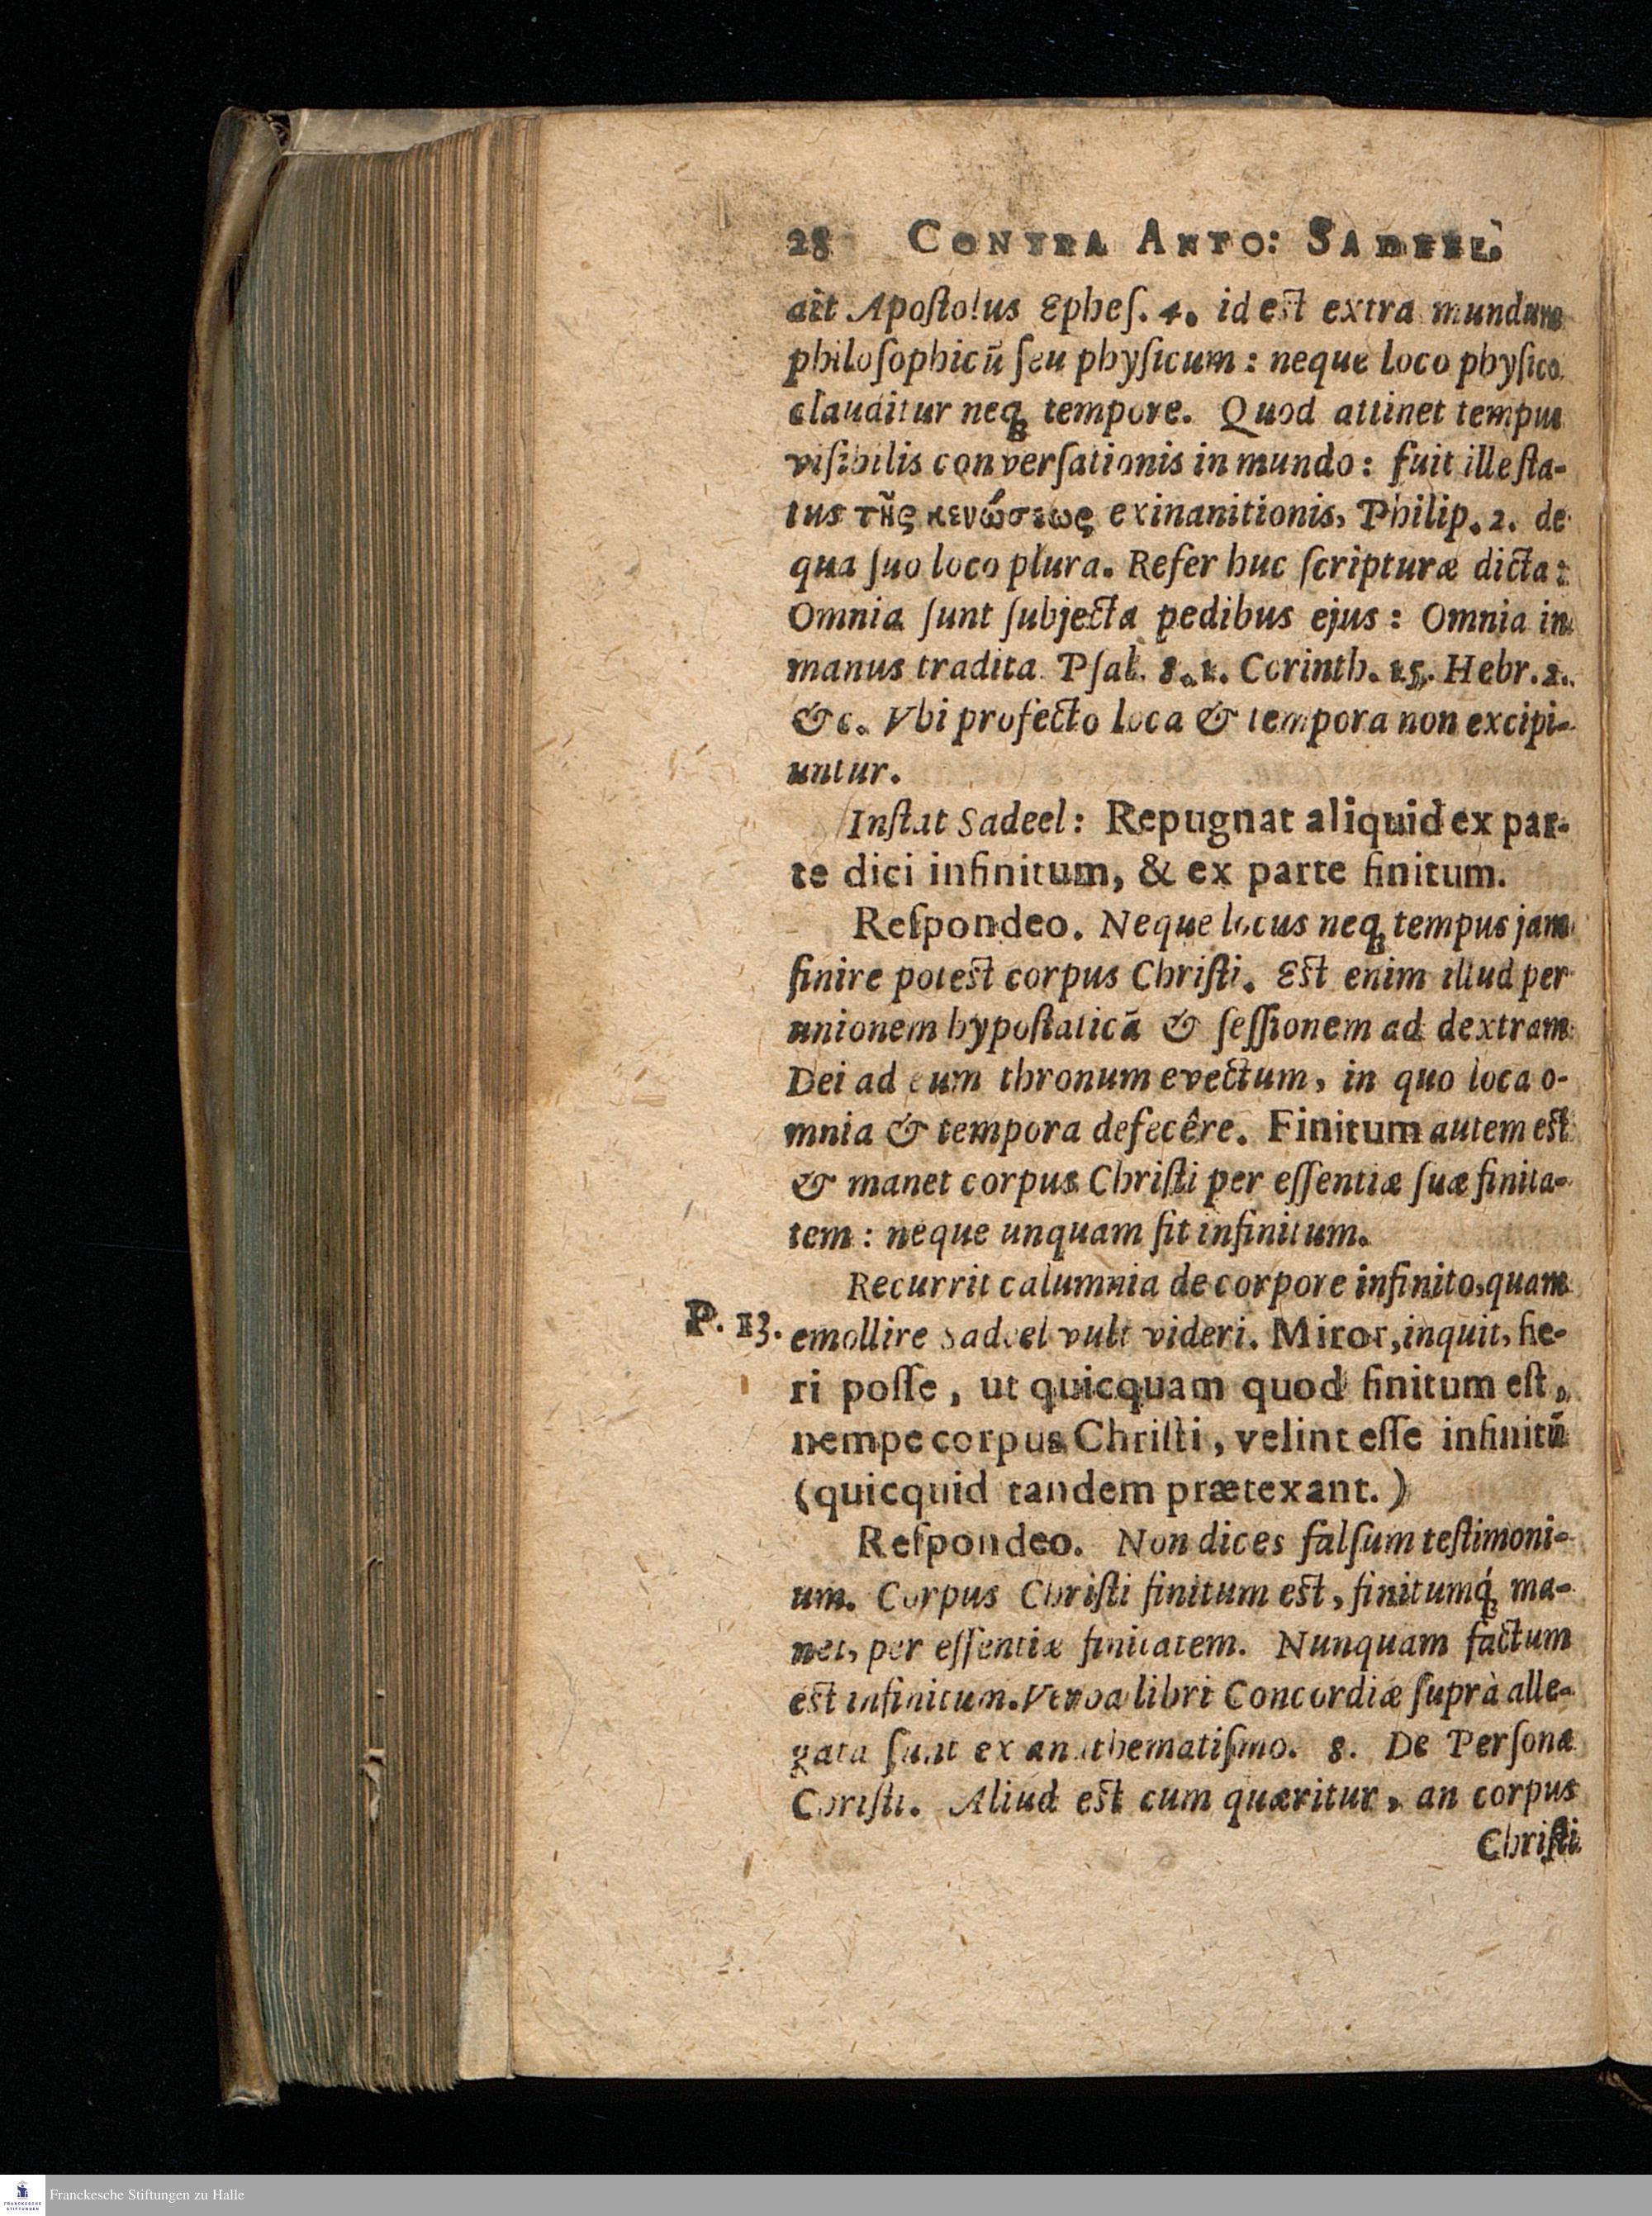 28 CONTRA ANTO: SADEEL.
ait Apoſtolus Epheſ. 4. id est extra mundum
philoſophicū ſeu phyſicum: neque loco phyſico
clauditur neq; tempore. Quod attinet tempus
viſibilis converſationis in mundo: fuit ille ſta-
tus τῆς κενώσεως exinanitionis, Philip. 2. de
qua ſuo loco plura. Refer huc ſcripturæ dicta:
Omnia ſunt ſubjecta pedibus ejus: Omnia in
manus tradita Pſal. 8. 1. Corinth. 15. Hebr. 2.
&c. Vbi profecto loca & tempora non excipi-
untur.
Inſtat Sadeel: Repugnat aliquid ex par-
te dici infinitum, & ex parte finitum.
Reſpondeo. Neque locus neq; tempus jam
finire potest corpus Chriſti. Est enim illud per
unionem hypoſtaticā & ſeſſionem ad dextram
Dei ad eum thronum evectum, in quo loca o-
mnia & tempora defecêre. Finitum autem est
& manet corpus Chriſti per eſſentiæ ſuæ finita-
tem: neque unquam fit infinitum.
Recurrit calumnia de corpore infinito, quam
P. 13. emollire Sadeel vult videri. Miror, inquit, fie-
ri poſſe, ut quicquam quod finitum eſt,
nempe corpus Chriſti, velint eſſe infinitū
(quicquid tandem prætexant.)
Reſpondeo. Non dices falſum teſtimoni-
um. Corpus Chriſti finitum est, finitumq́; ma-
net, per eſſentiæ finitatem. Nunquam factum
est infinitum. Verba libri Concordiæ ſuprà alle-
gata ſunt ex anathematiſmo. 8. De Perſona
Chriſti. Aliud est cum quæritur, an corpus
Chriſti
Franckesche Stiftungen zu Halle